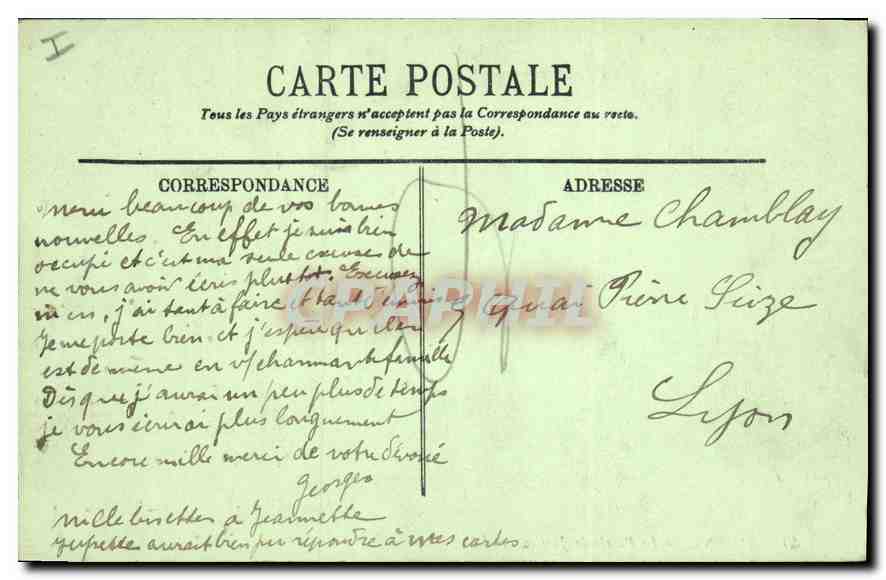 I
CARTE POSTALE
Tous les Pays étrangers n'acceptent pas la Correspondance au recto.
(Se renseigner à la Poste).
CORRESPONDANCE
Merci beaucoup de vos bonnes
nouvelles. En effet je suis bien
occupé et c'est ma seule excuse de
ne vous avoir écris plus tôt. Excusez
j'ai tant à faire et tant
Je me porte bien et j'espère qu'il en
est de même en v/charmante famille
Dès que j'aurai un peu plus de temps
je vous écrirai plus longuement
Encore mille merci de votre dévoué
Georges
Mille bisettes à Jeannette
aurait bien pu répondre à mes cartes.
ADRESSE
Madame Chamblay
5 quai Pierre Scize
Lyon
CPAPHIL